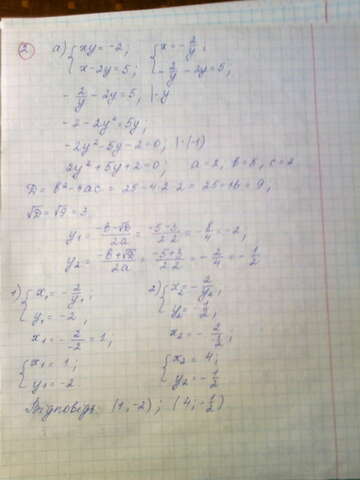 2 а) { xy = -2; { x = -2/y;
x - 2y = 5; -2/y - 2y = 5;
-2/y - 2y = 5, | · y
-2 - 2y² = 5y;
-2y² - 5y - 2 = 0, | · (-1)
2y² + 5y + 2 = 0; a = 2, b = 5, c = 2
D = b² - 4ac = 25 - 4·2·2 = 25 - 16 = 9,
√D = √9 = 3,
y₁ = (-b - √D)/2a = (-5 - 3)/2·2 = -8/4 = -2,
y₂ = (-b + √D)/2a = (-5 + 3)/2·2 = -2/4 = -1/2
1) { x₁ = -2/y₁; 2) { x₂ = -2/y₂;
y₁ = -2, y₂ = -1/2,
x₁ = -2/-2 = 1,
{ x₁ = 1; { x₂ = 4;
y₁ = -2 y₂ = -1/2
Відповідь: (1; -2); (4; -1/2)